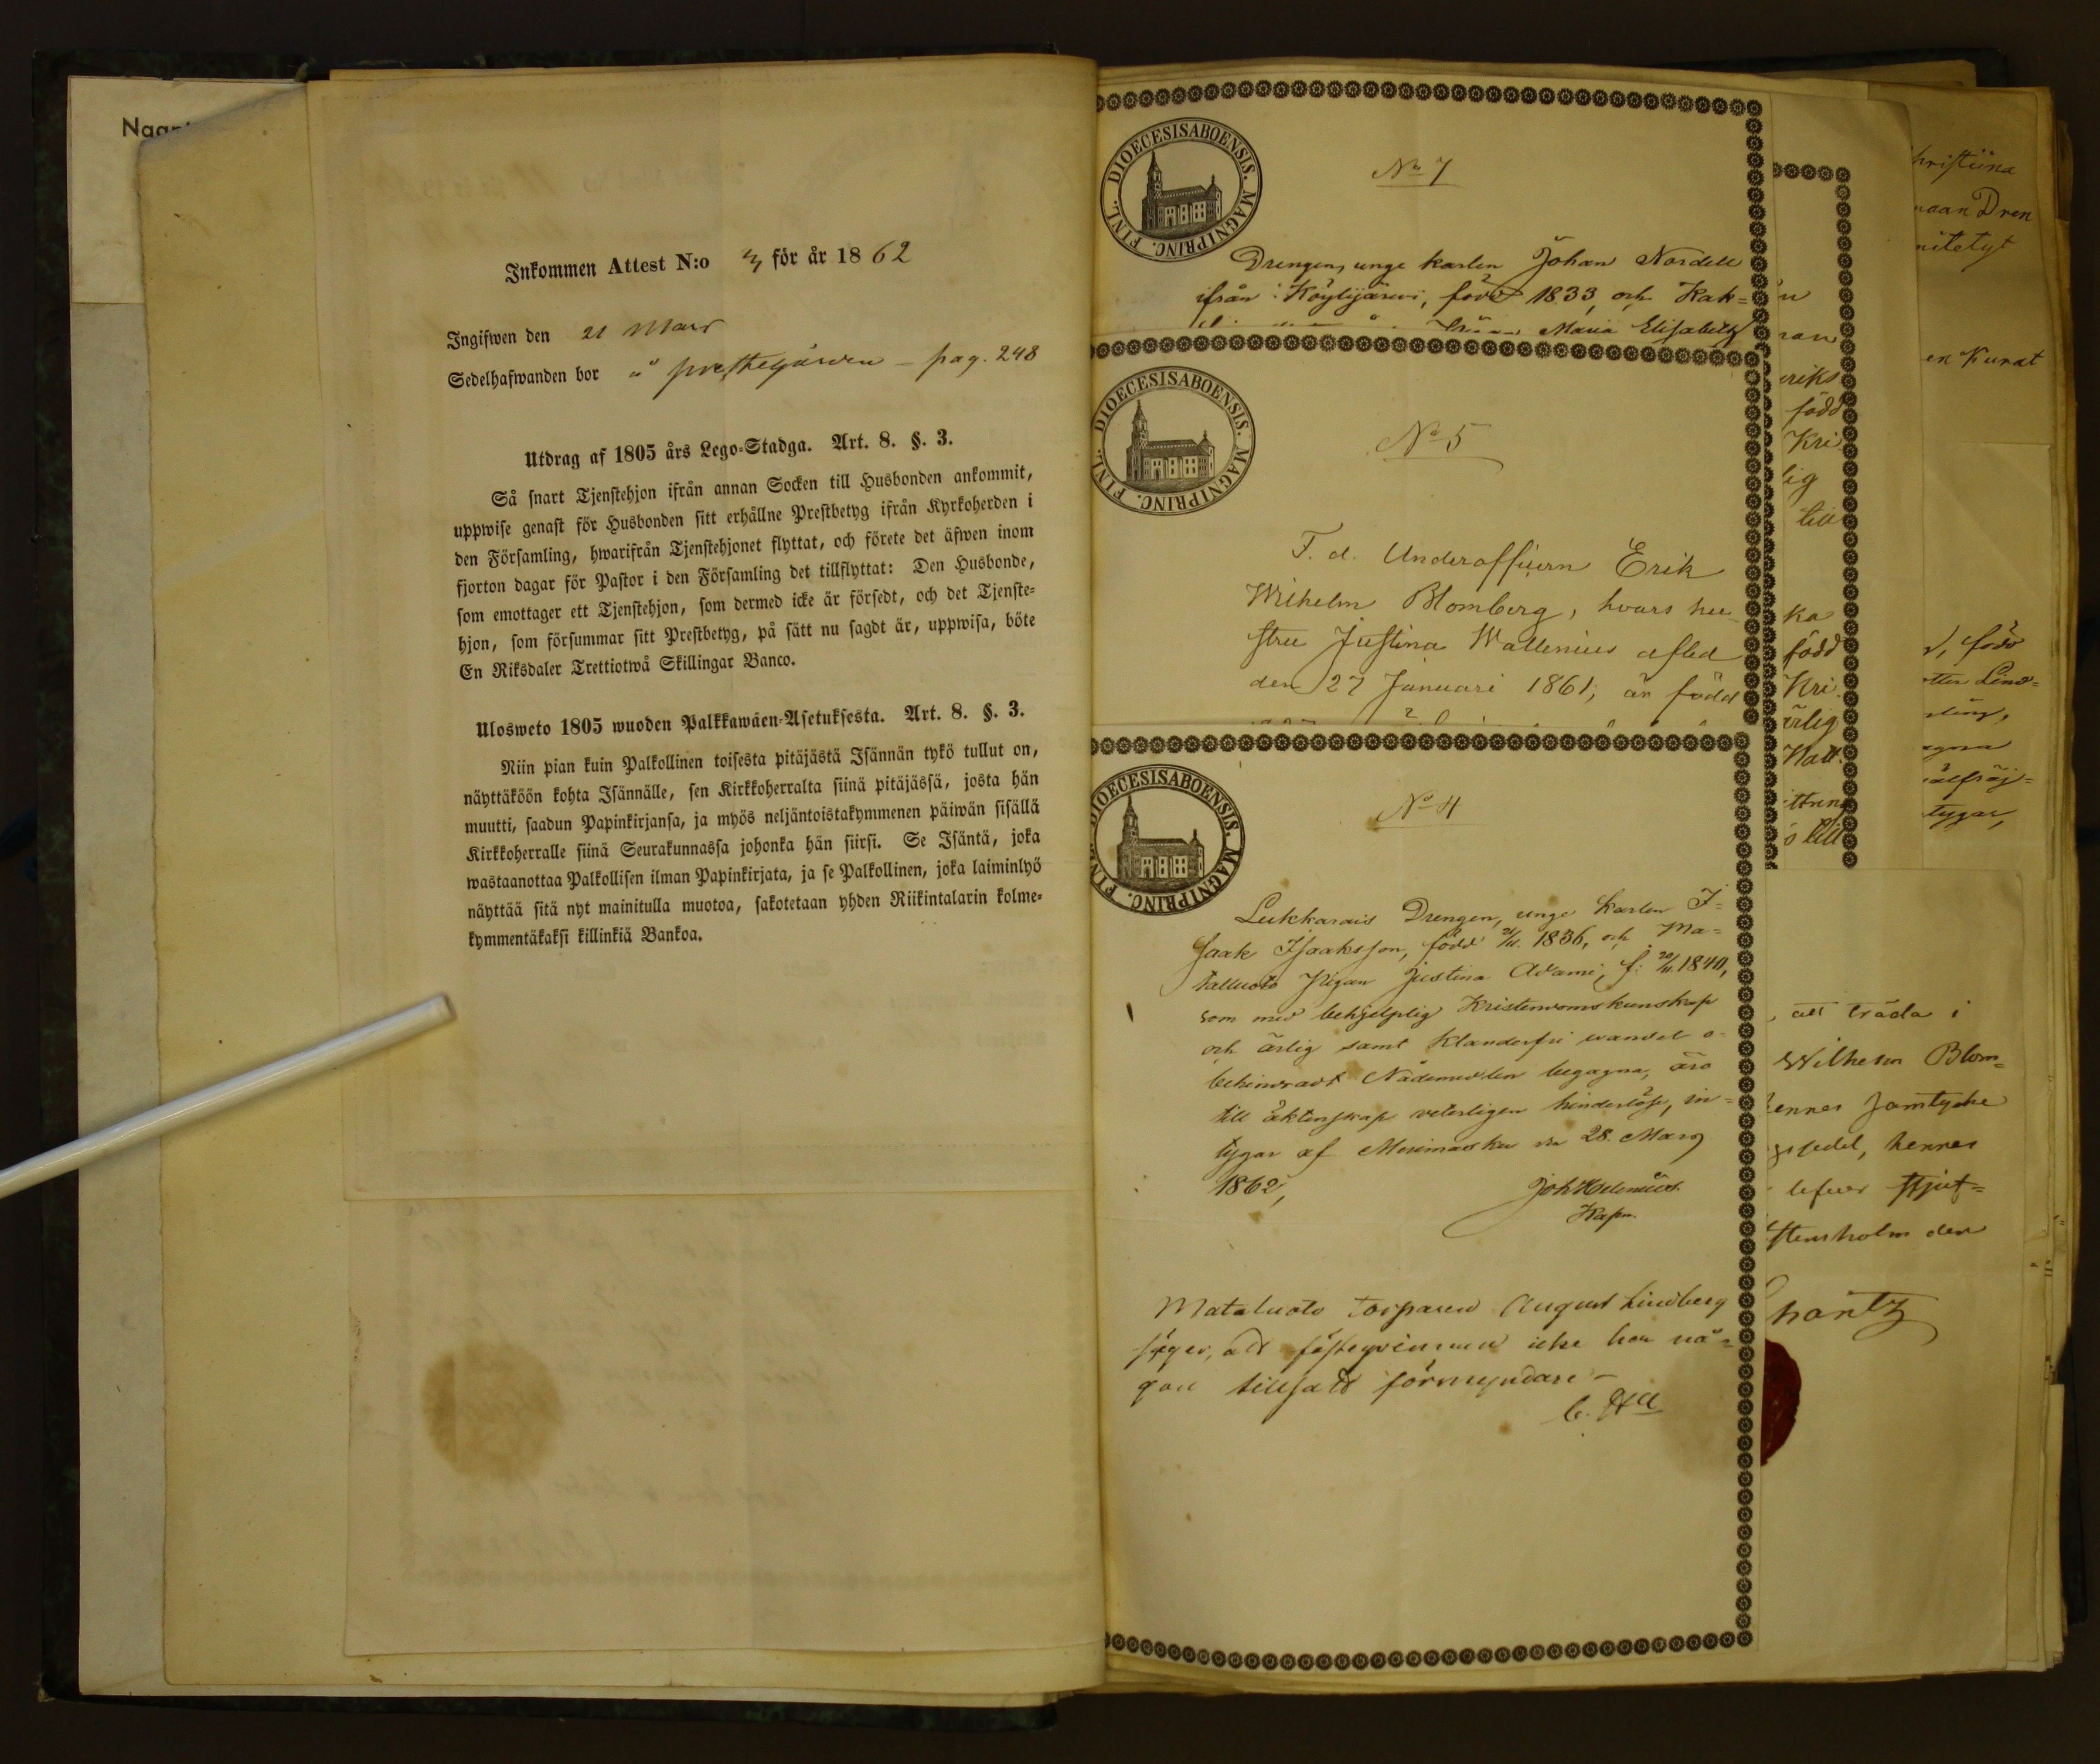 Inkommen Attest N:o 3 för år 1862
Ingifwen den 21 Mars
Sedelhafwanden bor å prestegården - pag. 248
Utdrag af 1805 års Lego-Stadga. Art. 8. §. 3.
Så snart Tjenstehjon ifrån annan Socken till Husbonden ankommit,
uppwise genast för Husbonden sitt erhållne Prestbetyg ifrån Kyrkoherden i
den Församling, hwarifrån Tjenstehjonet flyttat, och förete det äfwen inom
fjorton dagar för Pastor i den Församling det tillflyttat: Den Husbonde,
som emottager ett Tjenstehjon, som dermed icke är försedt, och det Tjenste-
hjon, som försummar sitt Prestbetyg, på sätt nu sagdt är, uppwisa, böte
En Riksdaler Trettiotwå Skillingar Banco.
Ulosweto 1805 wuoden Palkkawäen-Asetuksesta. Art. 8. §. 3.
Niin pian kuin Palkollinen toisesta pitäjästä Isännän tykö tullut on,
näyttäköön kohta Isännälle, sen Kirkkoherralta siinä pitäjässä, josta hän
muutti, saadun Papinkirjansa, ja myös neljäntoistakymmenen päiwän sisällä
Kirkkoherralle siinä Seurakunnassa johonka hän siirsi. Se Isäntä, joka
wastaanottaa Palkollisen ilman Papinkirjata, ja se Palkollinen, joka laiminlyö
näyttää sitä nyt mainitulla muotoa, sakotetaan yhden Riikintalarin kolme-
kymmentäkaksi killinkiä Bankoa.
DIOECESIS ABOENSIS. MAGNI PRINC. FINL.
No 7
Drengen, unge karlen Johan Nordell
ifrån Köylijärwi, född 1833 och Kak=
Maria Elisabeth
DIOECESIS ABOENSIS. MAGNI PRINC. FINL.
No 5
F. d. Underofficern Erik
Wilhelm Blomberg, hvars hu-
stru Justina Wallenius afled
den 27 Januari 1861, är född
DIOECESIS ABOENSIS. MAGNI PRINC. FINL.
No 4
Lukkarais Drengen, unge karlen I=
saak Isaaksson, född 1836, och Ma=
talluoto Pigan Justina Adami, f: 20/11 1840,
som med behjelplig Kristendomskunskap
och ärlig samt klanderfri wandel o-
behindradt Nådemedlen begagna, äro
till äktenskap veterligen hinderlöse, in-
tygar af Merimasku den 28 Mars
1862,
Kapn.
Mataluoto Torparen August Lindberg
säger, att fästeqvinnan icke har nå-
gon tillsatt förmyndare -
hristiina
naan Dren
en Kurat
eriks
född
Kri
lig
till
ka
född
Kri.
ärlig
Natt
s till
, född
tygar,
, att träda i
Wilhelm Blom=
hennes samtycke
sedel, hennes